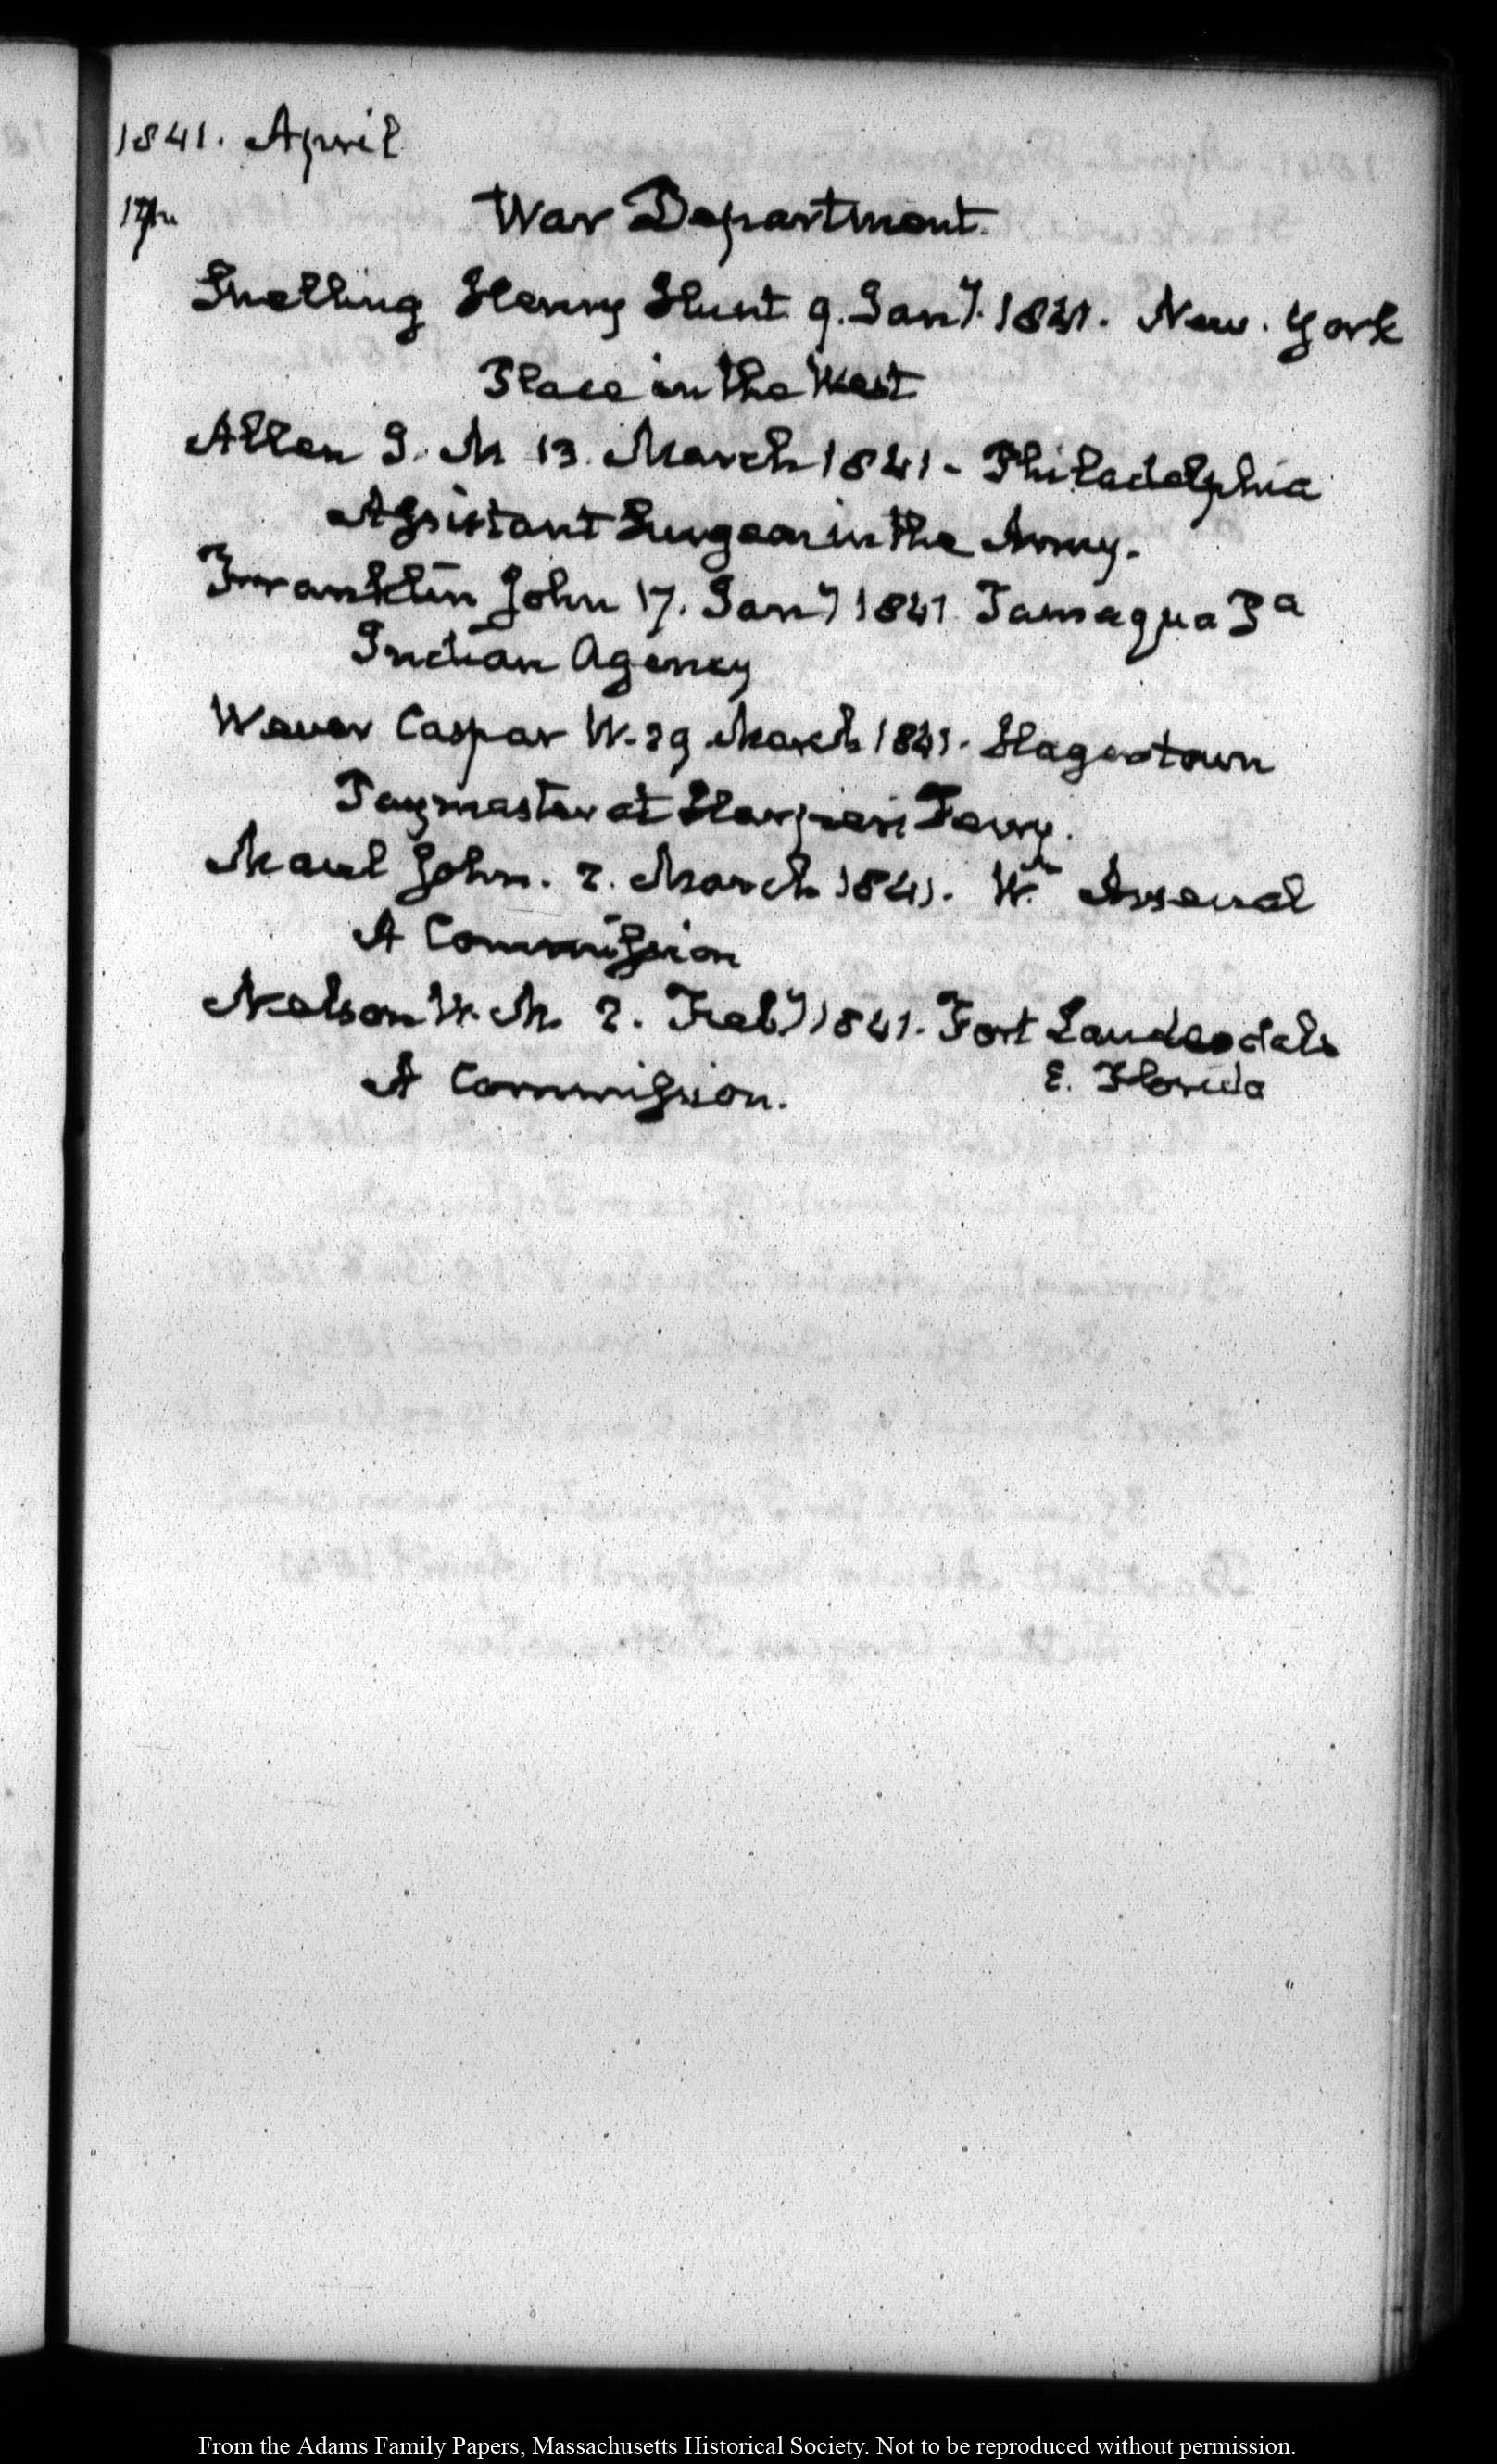 1841. April
17th
War Department.
Snelling Henry Hunt 9. Jany. 1841. New. York
Place in the West
Allen J. M 13. March 1841 - Philadelphia
Assistant Surgeon in the Army.
Franklin John 17. Jany 1841 Tamaqua Pa
Indian Agency
Wever Caspar W. 29 March 1841. Hagerstown
Paymaster at Harpers Ferry.
Maul John. 2. March 1841. Wn Arsenal
A Commission
Nelson W. M. 2. Feby 1841. Fort Lauderdale
E. Florida
A Commission.
From the Adams Family Papers, Massachusetts Historical Society. Not to be reproduced without permission.